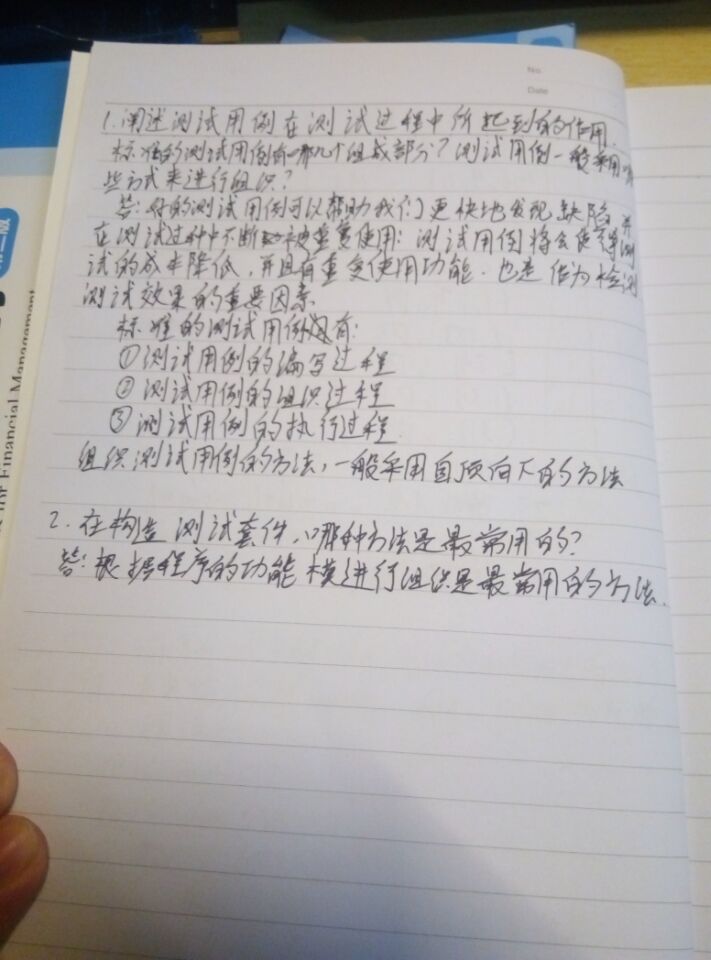 No.
Date
1.阐述测试用例在测试过程中所起到的作用.
标准的测试用例有哪几个组成部分?测试用例一般采用哪
些方式来进行组织?
答:好的测试用例可以帮助我们更快地发现缺陷,并
在测试过程中不断被重复使用:测试用例将会使得测
试的成本降低,并且有重复使用功能.也是作为检测
测试效果的重要因素
标准的测试用例有:
①测试用例的编写过程
②测试用例的组织过程
③测试用例的执行过程.
组织测试用例的方法,一般采用自顶向下的方法
2.在构造测试套件,哪种方法是最常用的?
答:根据程序的功能模进行组织是最常用的方法.
for Financial Management